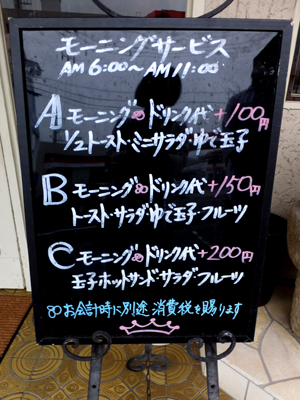 モーニングサービス
AM 6:00～AM 11:00
A モーニング∞ドリンク代+100円
1/2トースト・ミニサラダ・ゆで玉子
B モーニング∞ドリンク代+150円
トースト・サラダ・ゆで玉子・フルーツ
C モーニング∞ドリンク代+200円
玉子ホットサンド・サラダ・フルーツ
∞お会計時に別途 消費税を賜ります